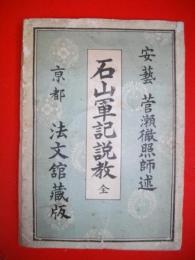 安藝 菅瀬徹照師述
石山軍記説教 全
京都 法文舘藏版